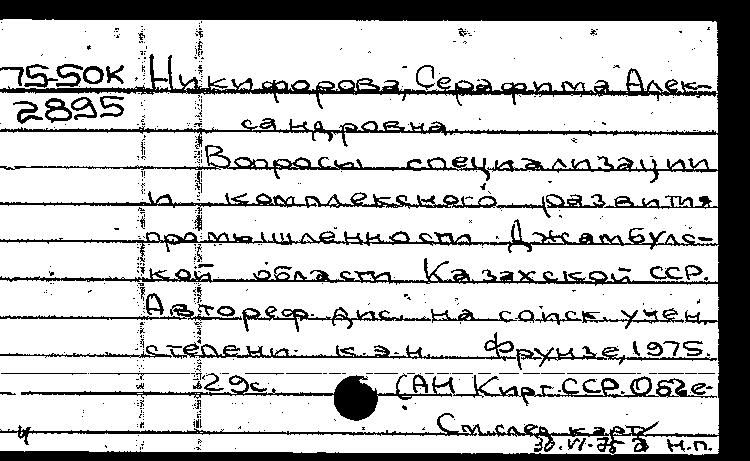 75-50К
2895
Никифорова, Серафима Алек-
сандровна.
Вопросы специализации
и комплексного развития
промышленности Джамбулс-
кой области Казахской ССР.
Автореф. дис. на соиск. учен.
степени к.э.н. Фрунзе, 1975.
29с. (АН Кирг.ССР. Объе-
См.след.карт.
30.VI.75 Н.П.